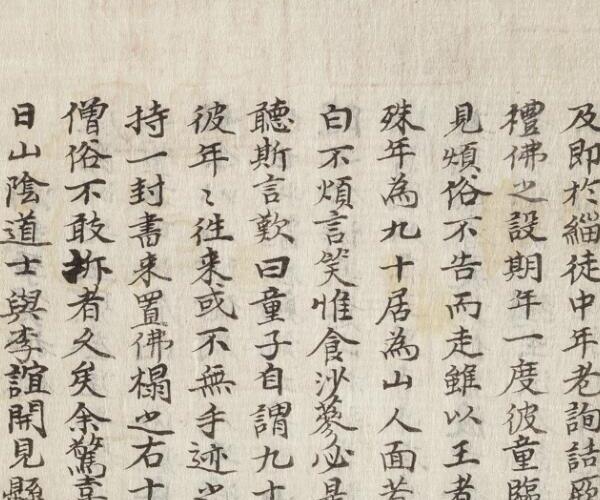 及即於緇徒中年老詢詰
禮佛之設期年一度彼童臨
見煩俗不告而走雖以王者
殊年為九十居為山人面若
白不煩言笑惟食沙蓼必是
聽斯言歎曰童子自謂九十
彼年〻往来或不無手迹之
持一封書来置佛榻之右十
僧俗不敢拆者久矣余驚喜
日山陰道士與李誼開見懸